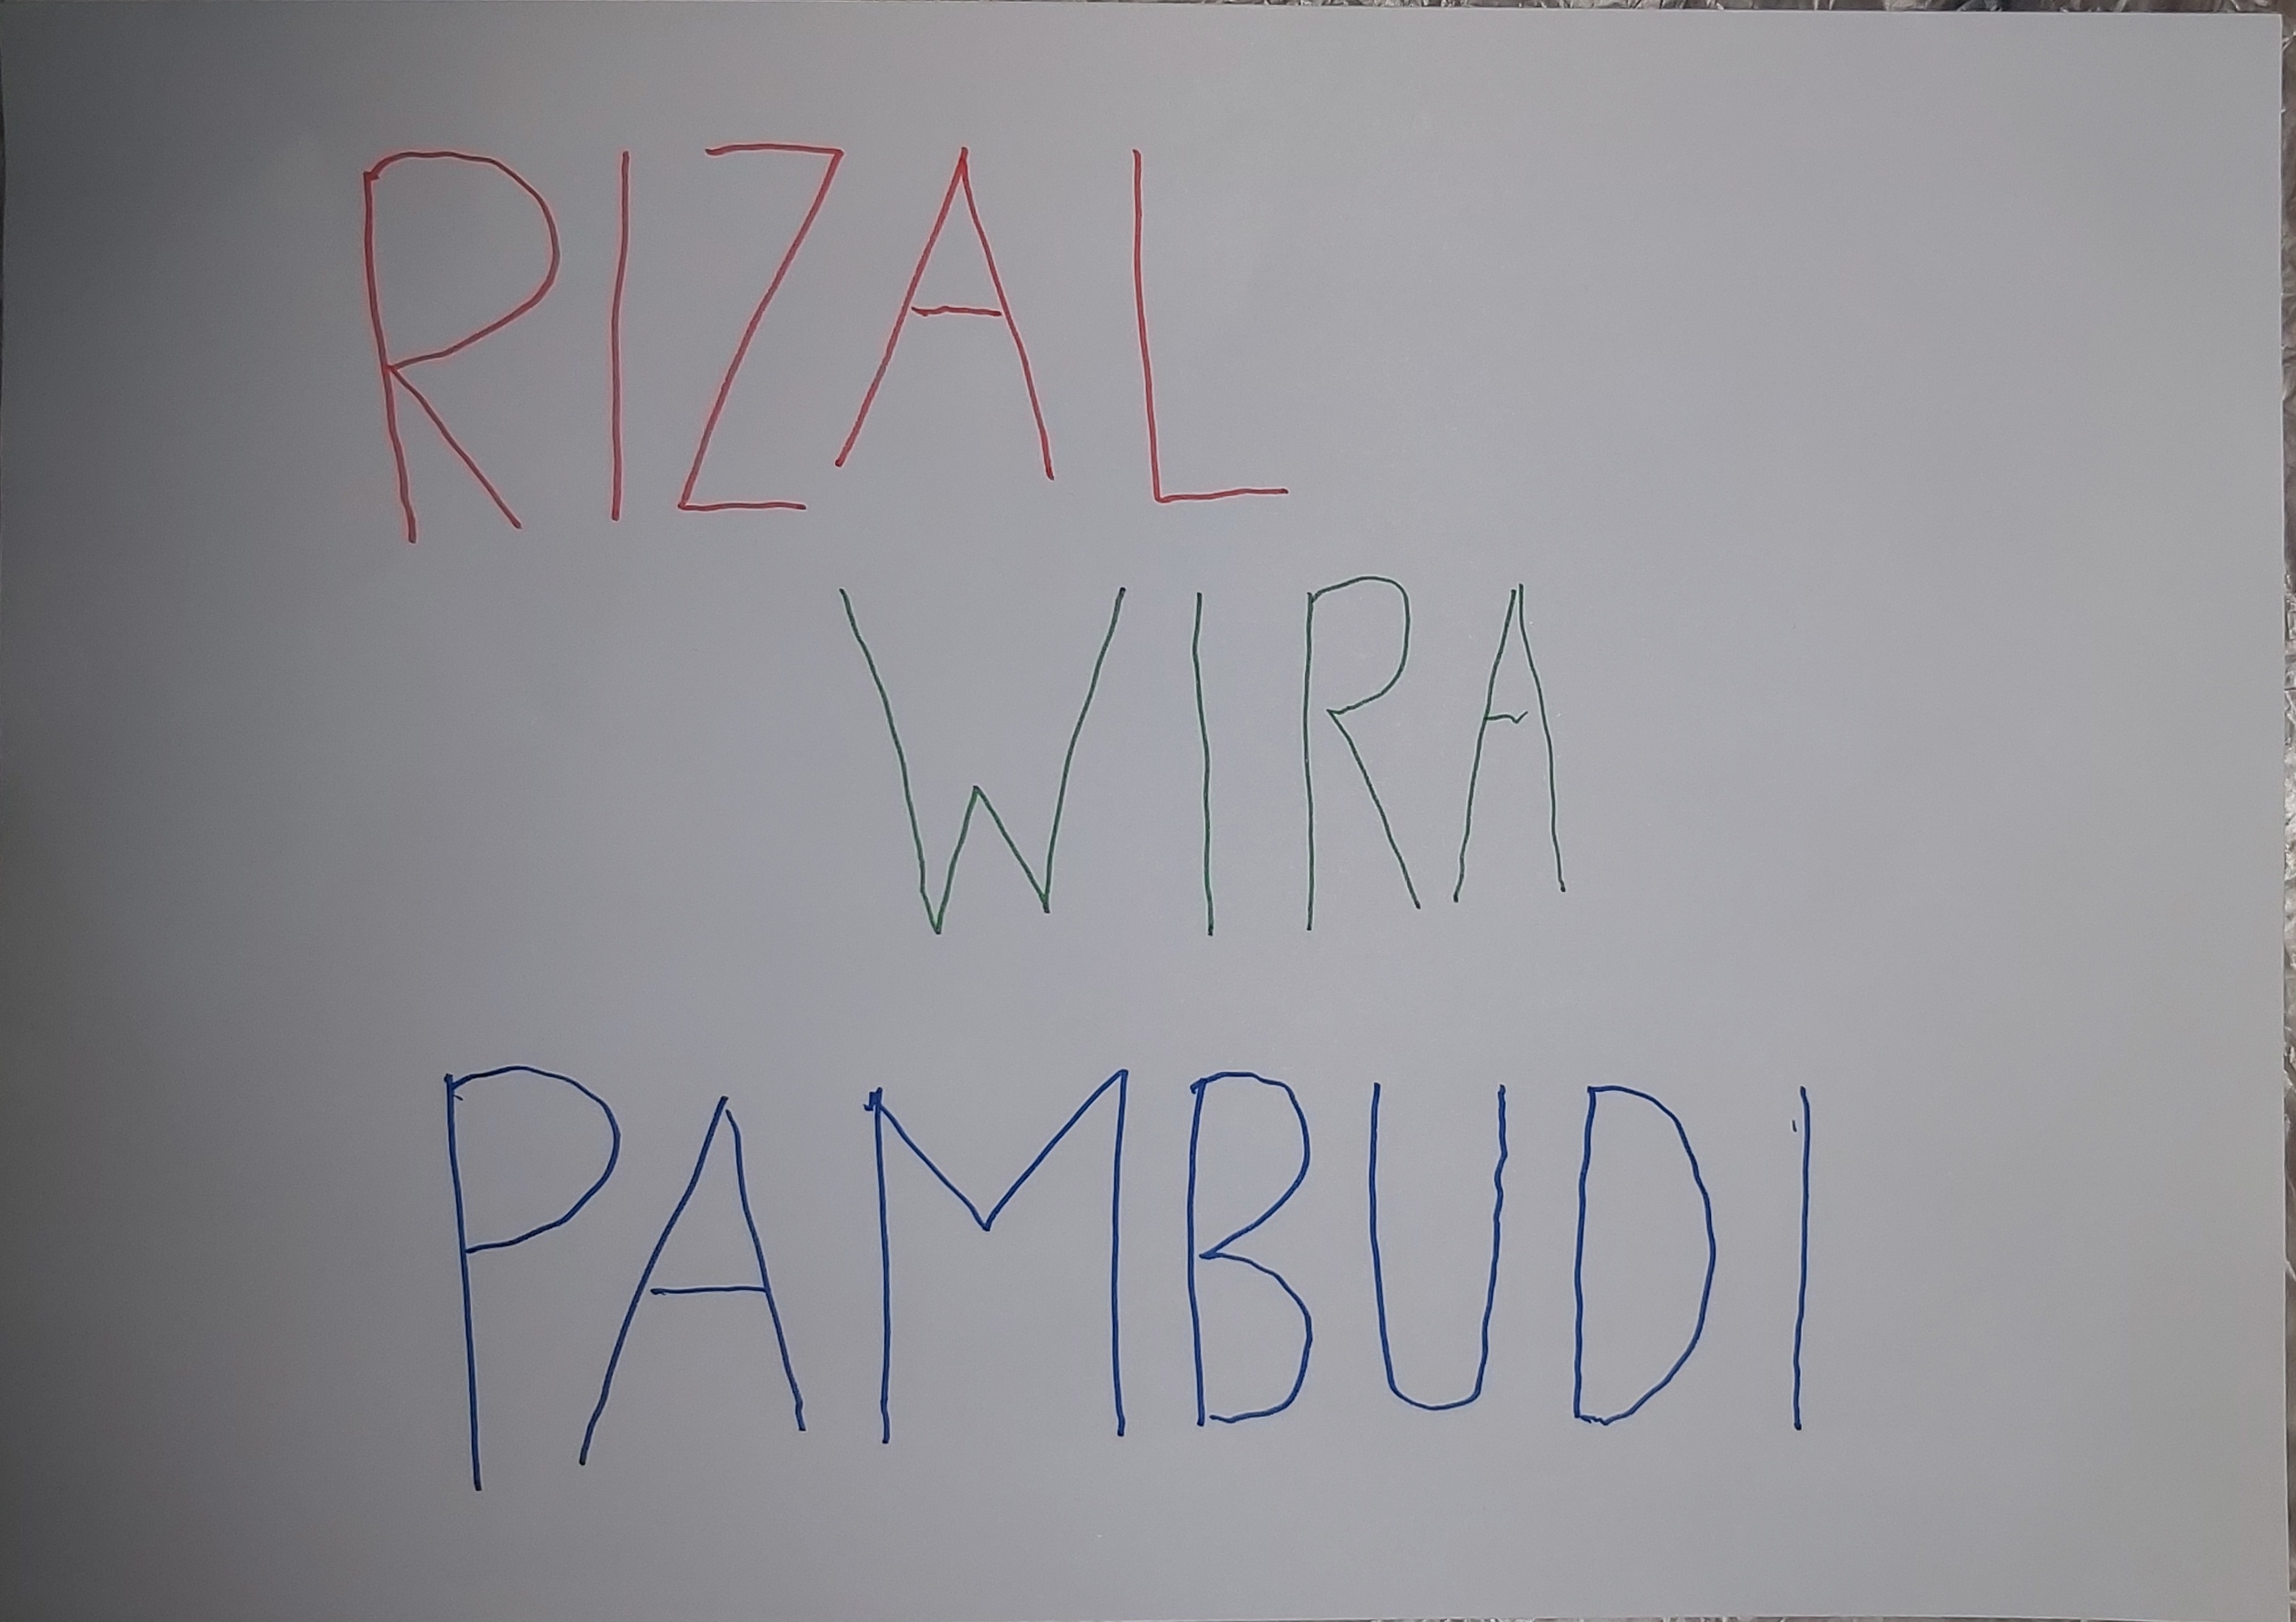 RIZAL
WIRA
PAMBUDI